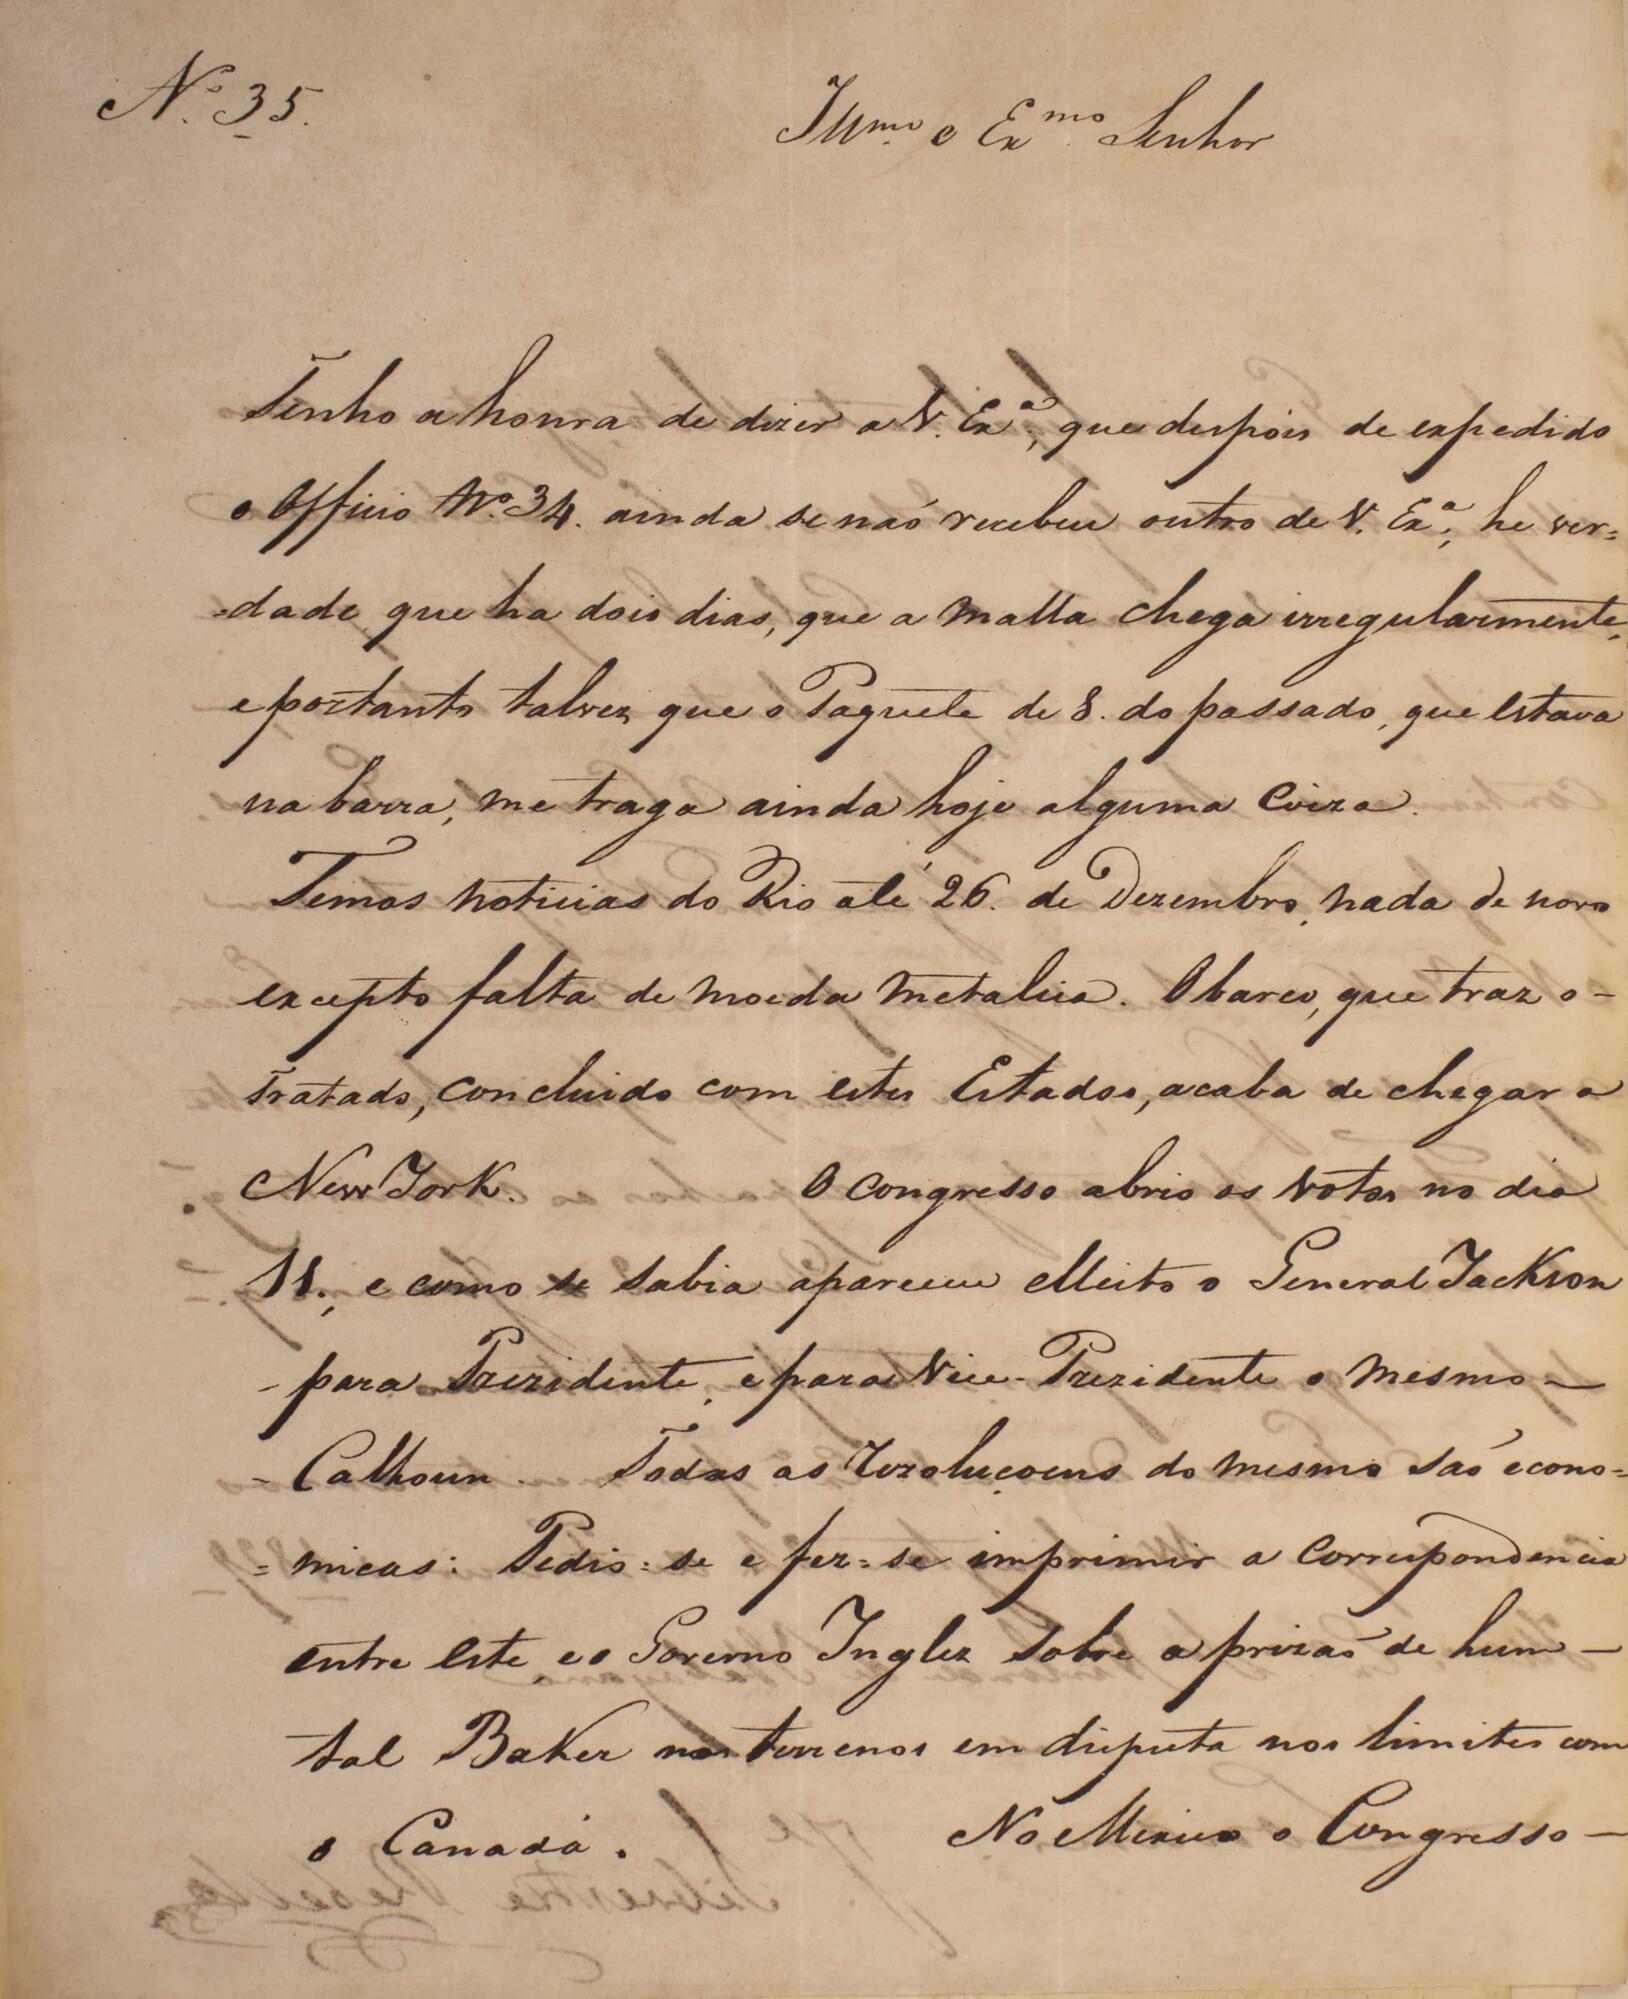 N.º 35.
Illmo. e Exmo. Senhor
Tenho a honra de dizer a V. Exª., que despois de expedido
o Officio Nº. 34. ainda se naó recebeu outro de V. Exª.; he ver=
=dade, que ha dois dias, que a malla chega irregularmente,
e portanto talvez que o Paquete de 8. do passado, que estava
na barra, me traga ainda hoje alguma coiza.
Temos noticias do Rio até 26. de Dezembro, nada de novo
excepto falta de moeda metalica. O barco, que traz o -
Tratado, concluido com estes Estados, acaba de chegar a
New York. O Congresso abrio os votos no dia
11., e como se sabia apareceu elleito o General Jackson
- para Prezidente, e para Vice-Prezidente o mesmo -
- Calhoun. Todas as rezoluçoens do mesmo saó econo=
= micas: Pedio=se e fez=se imprimir a correspondencia
entre este, e o Governo Inglez sobre a prizaó de hum -
tal Baker nos terrenos em disputa nos limites com
o Canadá. No Mexico o Congresso -